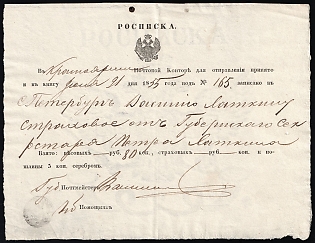 РОСПИСКА.
Въ Красноярской Почтовой Конторѣ для отправленія принято
и въ книгу 31 дня 1845 года подъ № 165 записано въ
С Петербургъ Василию Латкину
страховое отъ Губернскаго Сек
ретаря Петра Латкина
Взято: вѣсовыхъ руб. 80 коп., страховыхъ руб. коп. и
пошлины 3 коп. серебромъ.
Губ Почтмейстеръ
Помощникъ